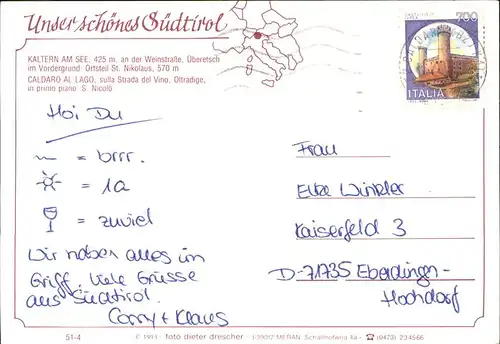 Unser schönes Südtirol
KALTERN AM SEE, 425 m, an der Weinstraße, Überetsch
im Vordergrund: Ortsteil St. Nikolaus, 570 m
CALDARO AL LAGO, sulla Strada del Vino, Oltradige,
in primo piano S. Nicolò
700
ITALIA
Hoi Du
= brrr.
= 1a
= zuviel
Wir haben alles im
Griff. Viele Grüsse
aus Südtirol.
Conny + Klaus
Frau
Elke Winkler
Kaiserfeld 3
D-71735 Eberdingen-
Hochdorf
51-4
© 1993 foto dieter drescher I-39012 MERAN, Schallhofweg (0473) 234566